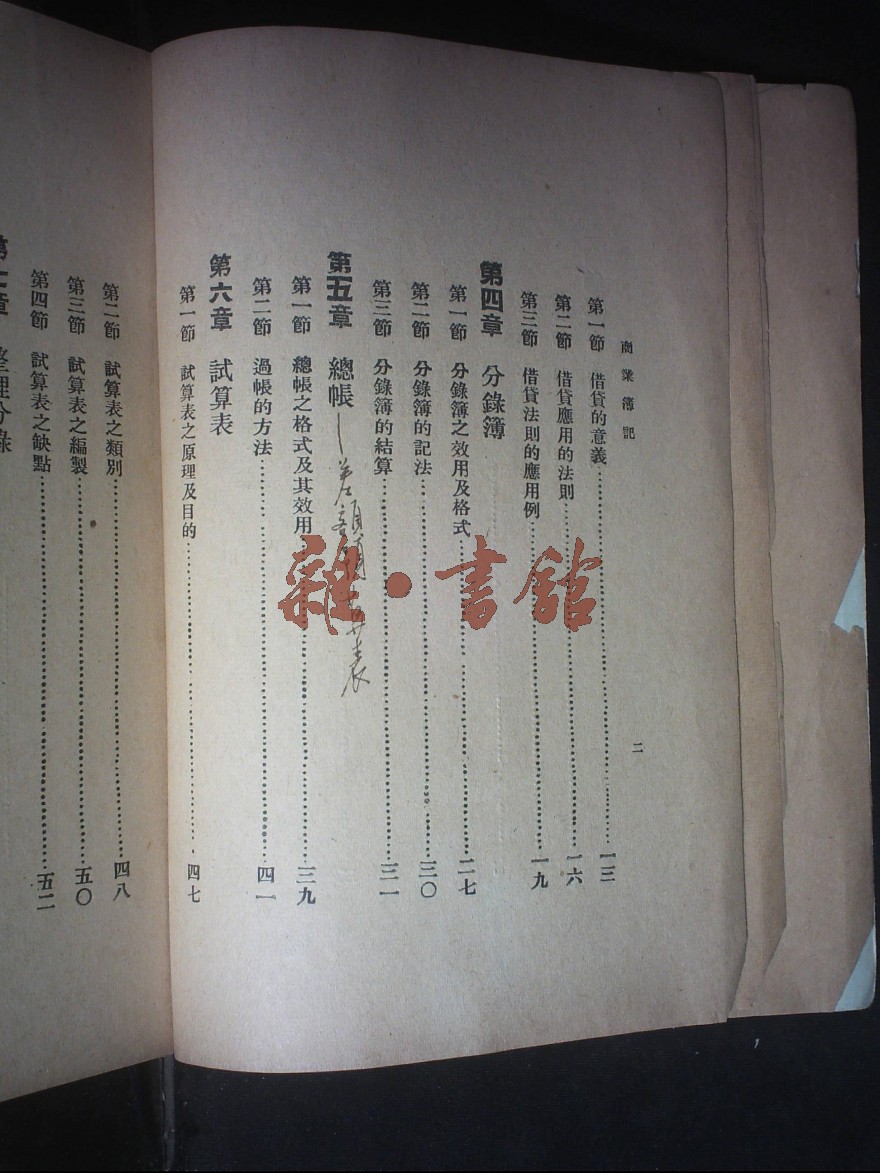 商業簿記
二
第一節 借貸的意義……一三
第二節 借貸應用的法則……一六
第三節 借貸法則的應用例……一九
第四章 分錄簿
第一節 分錄簿之效用及格式……二七
第二節 分錄簿的記法……三〇
第三節 分錄簿的結算……三一
第五章 總帳
第一節 總帳之格式及其效用……三九
第二節 過帳的方法……四一
第六章 試算表
第一節 試算表之原理及目的……四七
第二節 試算表之類別……四八
第三節 試算表之編製……五〇
第四節 試算表之缺點……五二
整理分錄
雜·書館